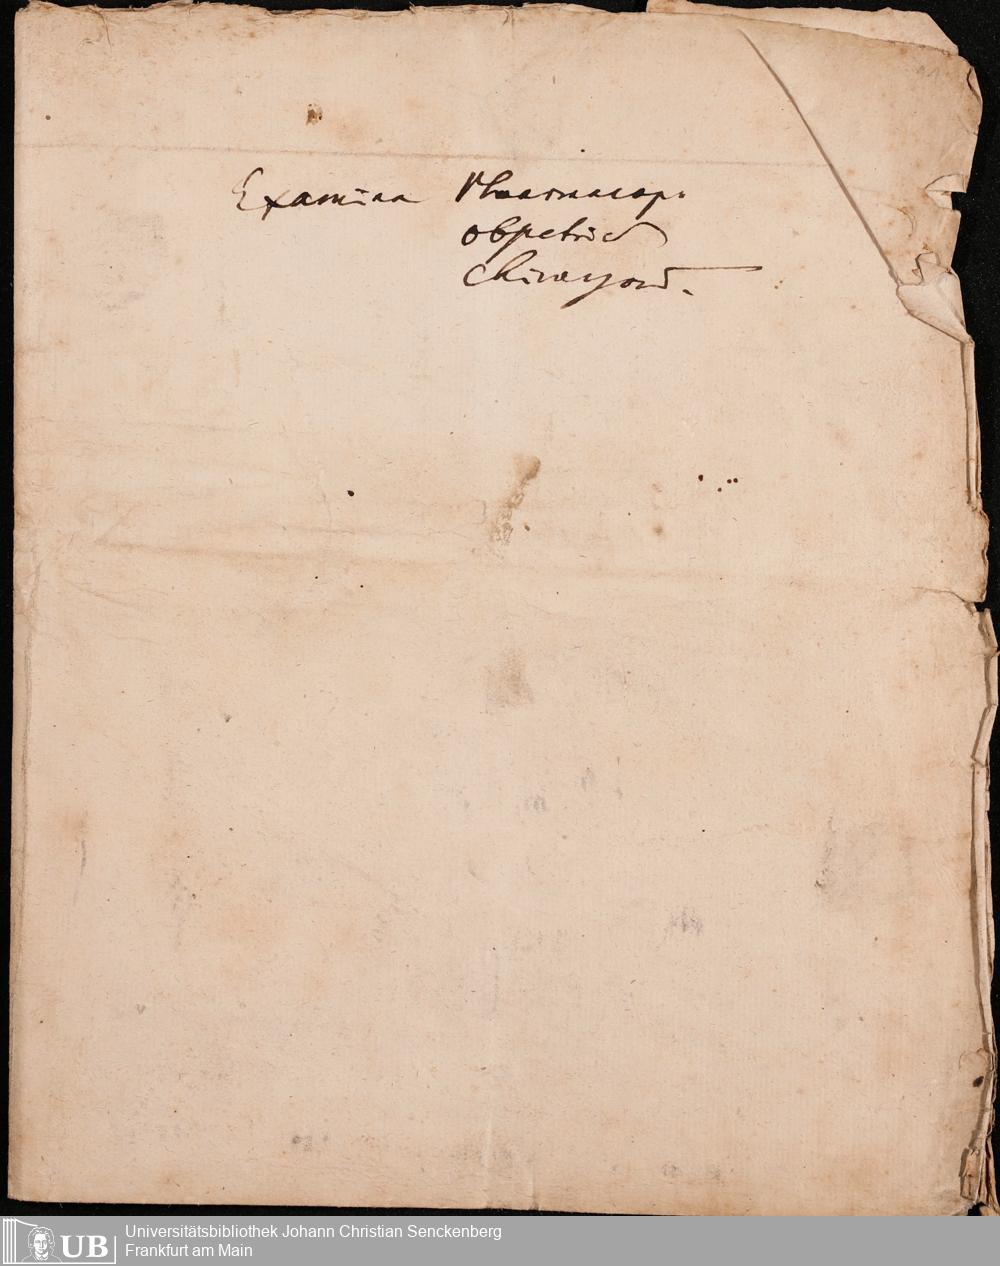 Examina Pharmacop.
obstetric
Chirurgor.
UB
Universitätsbibliothek Johann Christian Senckenberg
Frankfurt am Main